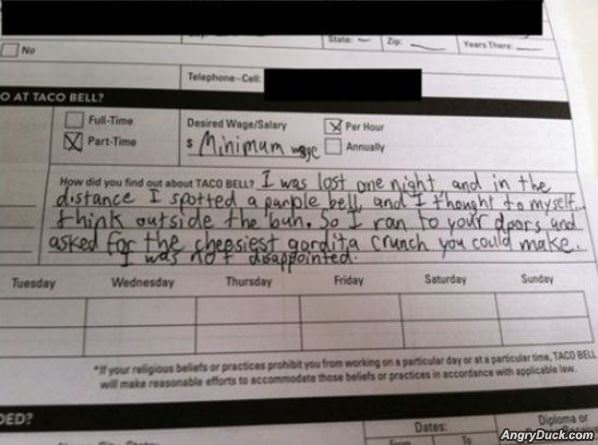 State:
Zip:
Years There:
No
Telephone-Cell:
O AT TACO BELL?
Full-Time
Desired Wage/Salary
X Per Hour
X Part-Time
$ Minimum wage
Annually
How did you find out about TACO BELL? I was lost one night, and in the
distance I spotted a purple bell, and I thought to myself..
think outside the bun. So I ran to your doors and
asked for the cheesiest gordita crunch you could make.
I was not disappointed.
Tuesday Wednesday Thursday Friday Saturday Sunday
*If your religious beliefs or practices prohibit you from working on a particular day or at a particular time, TACO BELL
will make reasonable efforts to accommodate those beliefs or practices in accordance with applicable law.
DED?
Dates:
Diploma or
From
To
AngryDuck.com